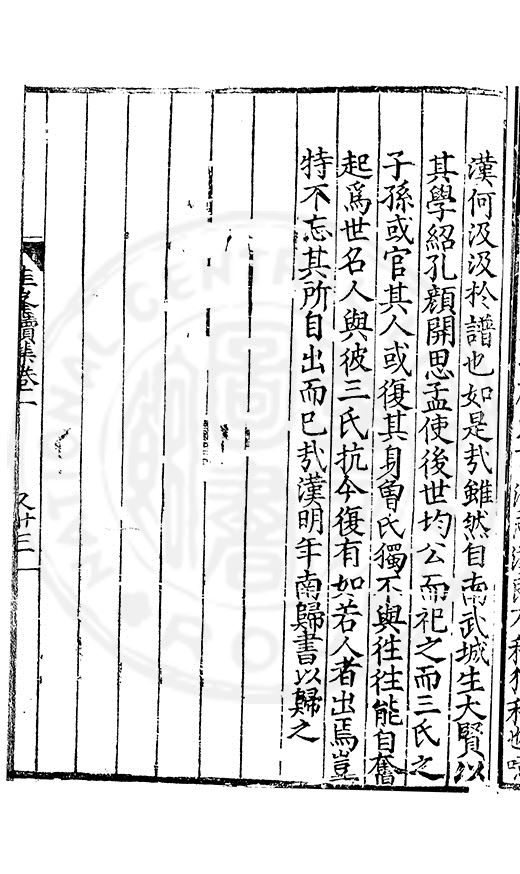 漢何汲汲於譜也如是㦲雖然自南武城生大賢以
其學紹孔顔開思孟使後世均公而祀之而三氏之
子孫或官其人或復其身曾氏獨不與徃徃能自奮
起爲世名人與彼三氏抗今復有如若人者出焉豈
特不忘其所自出而已㦲漢明年南歸書以歸之
圭峯續集卷二
又廿三